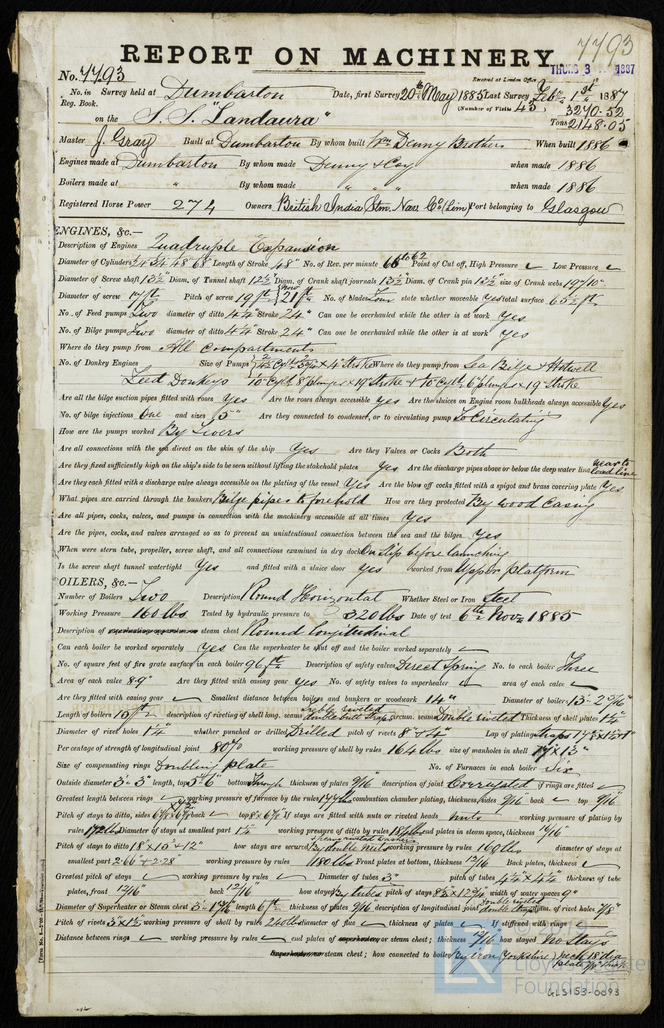 7793
REPORT ON MACHINERY
No. 7793
Received at London Office THURS 3 1887
No. in Survey held at Dumbarton Date, first Survey 20th May 1885 Last Survey Feby 1st 1887
Reg. Book. (Number of Visits 43) 3270.52
on the S.S. "Landaura" Tons 2148.05
Master J. Gray Built at Dumbarton By whom built Wm Denny Brothers When built 1886
Engines made at Dumbarton By whom made Denny & Coy when made 1886
Boilers made at " By whom made " " " when made 1886
Registered Horse Power 274 Owners British India Stm. Nav. Co. (Lim) Port belonging to Glasgow
ENGINES, &c.—
Description of Engines Quadruple Expansion
Diameter of Cylinders 24 34 48 68 Length of Stroke 48" No. of Rev. per minute 60 to 62 Point of Cut off, High Pressure Low Pressure
Diameter of Screw shaft 13½" Diam. of Tunnel shaft 12½" Diam. of Crank shaft journals 13½" Diam. of Crank pin 13½" size of Crank webs
Diameter of screw Pitch of screw 19 ft 21 ft No. of blades Four state whether moveable Yes total surface
No. of Feed pumps Two diameter of ditto 4¼" Stroke 24" Can one be overhauled while the other is at work Yes
No. of Bilge pumps Two diameter of ditto 4¼" Stroke 24" Can one be overhauled while the other is at work Yes
Where do they pump from All compartments
No. of Donkey Engines Size of Pumps Where do they pump from Sea Bilge & Hotwell
Feed Donkeys 10" Cyl 8" plunger × 19 Stroke & 10 Cyl 6" plunger × 19 Stroke
Are all the bilge suction pipes fitted with roses Yes Are the roses always accessible Yes Are the sluices on Engine room bulkheads always accessible Yes
No. of bilge injections One and sizes 5" Are they connected to condenser, or to circulating pump To Circulating
How are the pumps worked By Levers
Are all connections with the sea direct on the skin of the ship Yes Are they Valves or Cocks Both
Are they fixed sufficiently high on the ship's side to be seen without lifting the stokehold plates Yes Are the discharge pipes above or below the deep water line near to load line
Are they each fitted with a discharge valve always accessible on the plating of the vessel Yes Are the blow off cocks fitted with a spigot and brass covering plate Yes
What pipes are carried through the bunkers Bilge pipes to fore hold How are they protected By wood casing
Are all pipes, cocks, valves, and pumps in connection with the machinery accessible at all times Yes
Are the pipes, cocks, and valves arranged so as to prevent an unintentional connection between the sea and the bilges Yes
When were stern tube, propeller, screw shaft, and all connections examined in dry dock On Slip before launching
Is the screw shaft tunnel watertight Yes and fitted with a sluice door Yes worked from Upper platform
BOILERS, &c.—
Number of Boilers Two Description Round Horizontal Whether Steel or Iron Steel
Working Pressure 160 lbs Tested by hydraulic pressure to 320 lbs Date of test 6th Novr 1885
Description of superheating apparatus or steam chest Round longitudinal
Can each boiler be worked separately Yes Can the superheater be shut off and the boiler worked separately
No. of square feet of fire grate surface in each boiler 96 ft² Description of safety valves Direct Spring No. to each boiler Three
Area of each valve 8.9" Are they fitted with easing gear Yes No. of safety valves to superheater area of each valve
Are they fitted with easing gear Smallest distance between boilers and bunkers or woodwork 14" Diameter of boilers 13'-2 5/16"
Length of boilers description of riveting of shell long. seams treble riveted double butt straps circum. seams Double riveted Thickness of shell plates
Diameter of rivet holes 1¼" whether punched or drilled Drilled pitch of rivets 8" & 4" Lap of plating
Per centage of strength of longitudinal joint 80% working pressure of shell by rules 164 lbs size of manholes in shell 17" × 13"
Size of compensating rings Doubling plate No. of Furnaces in each boiler Six
Outside diameter 3'-3" length, top 5'-6" bottom Through thickness of plates 9/16" description of joint Corrugated if rings are fitted
Greatest length between rings working pressure of furnace by the rules combustion chamber plating, thickness, sides 9/16" back top 9/16"
Pitch of stays to ditto, sides back top If stays are fitted with nuts or riveted heads nuts working pressure of plating by
rules Diameter of stays at smallest part 1¼" working pressure of ditto by rules end plates in steam space, thickness
Pitch of stays to ditto 18 × 15 & 12" how stays are secured By double nuts working pressure by rules 160 lbs diameter of stays at
smallest part 2.66 & 2.28" working pressure by rules Front plates at bottom, thickness 13/16" Back plates, thickness
Greatest pitch of stays working pressure by rules Diameter of tubes 3" pitch of tubes 4¼" × 4¼" thickness of tube
plates, front back how stayed By tubes pitch of stays width of water spaces 9"
Diameter of Superheater or Steam chest length 6 ft thickness of plates 9/16" description of longitudinal joint double riveted diam. of rivet holes 7/8"
Pitch of rivets working pressure of shell by rules 240 lbs diameter of flue thickness of plates If stiffened with rings
Distance between rings working pressure by rules end plates of superheater, or steam chest; thickness how stayed No Stays
Superheater or steam chest; how connected to boiler By iron (Yorkshire) neck 18 dia
[Form No. 8
© 2019
LR Lloyd's Register
Foundation
GLS153-0093